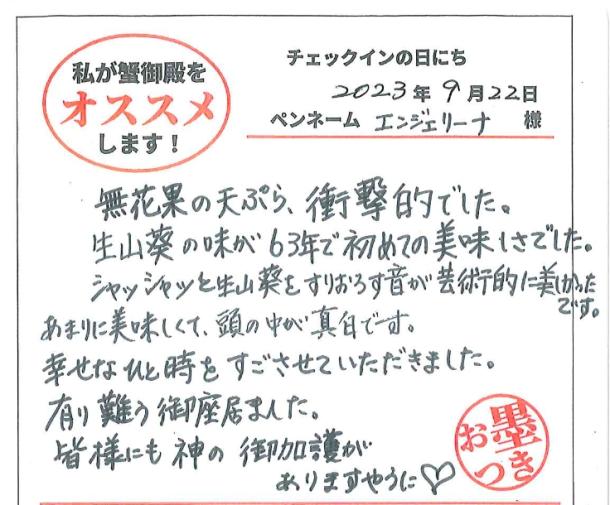 私が蟹御殿を
オススメ
します！
チェックインの日にち
2023年 9月22日
ペンネーム エンジェリーナ 様
無花果の天ぷら、衝撃的でした。
生山葵の味が63年で初めての美味しさでした。
シャッシャッと生山葵をすりおろす音が芸術的に美しかった
です。
あまりに美味しくて、頭の中が真白です。
幸せなひと時をすごさせていただきました。
有り難う御座居ました。
皆様にも神の御加護が
ありますやうに♡
お墨つき